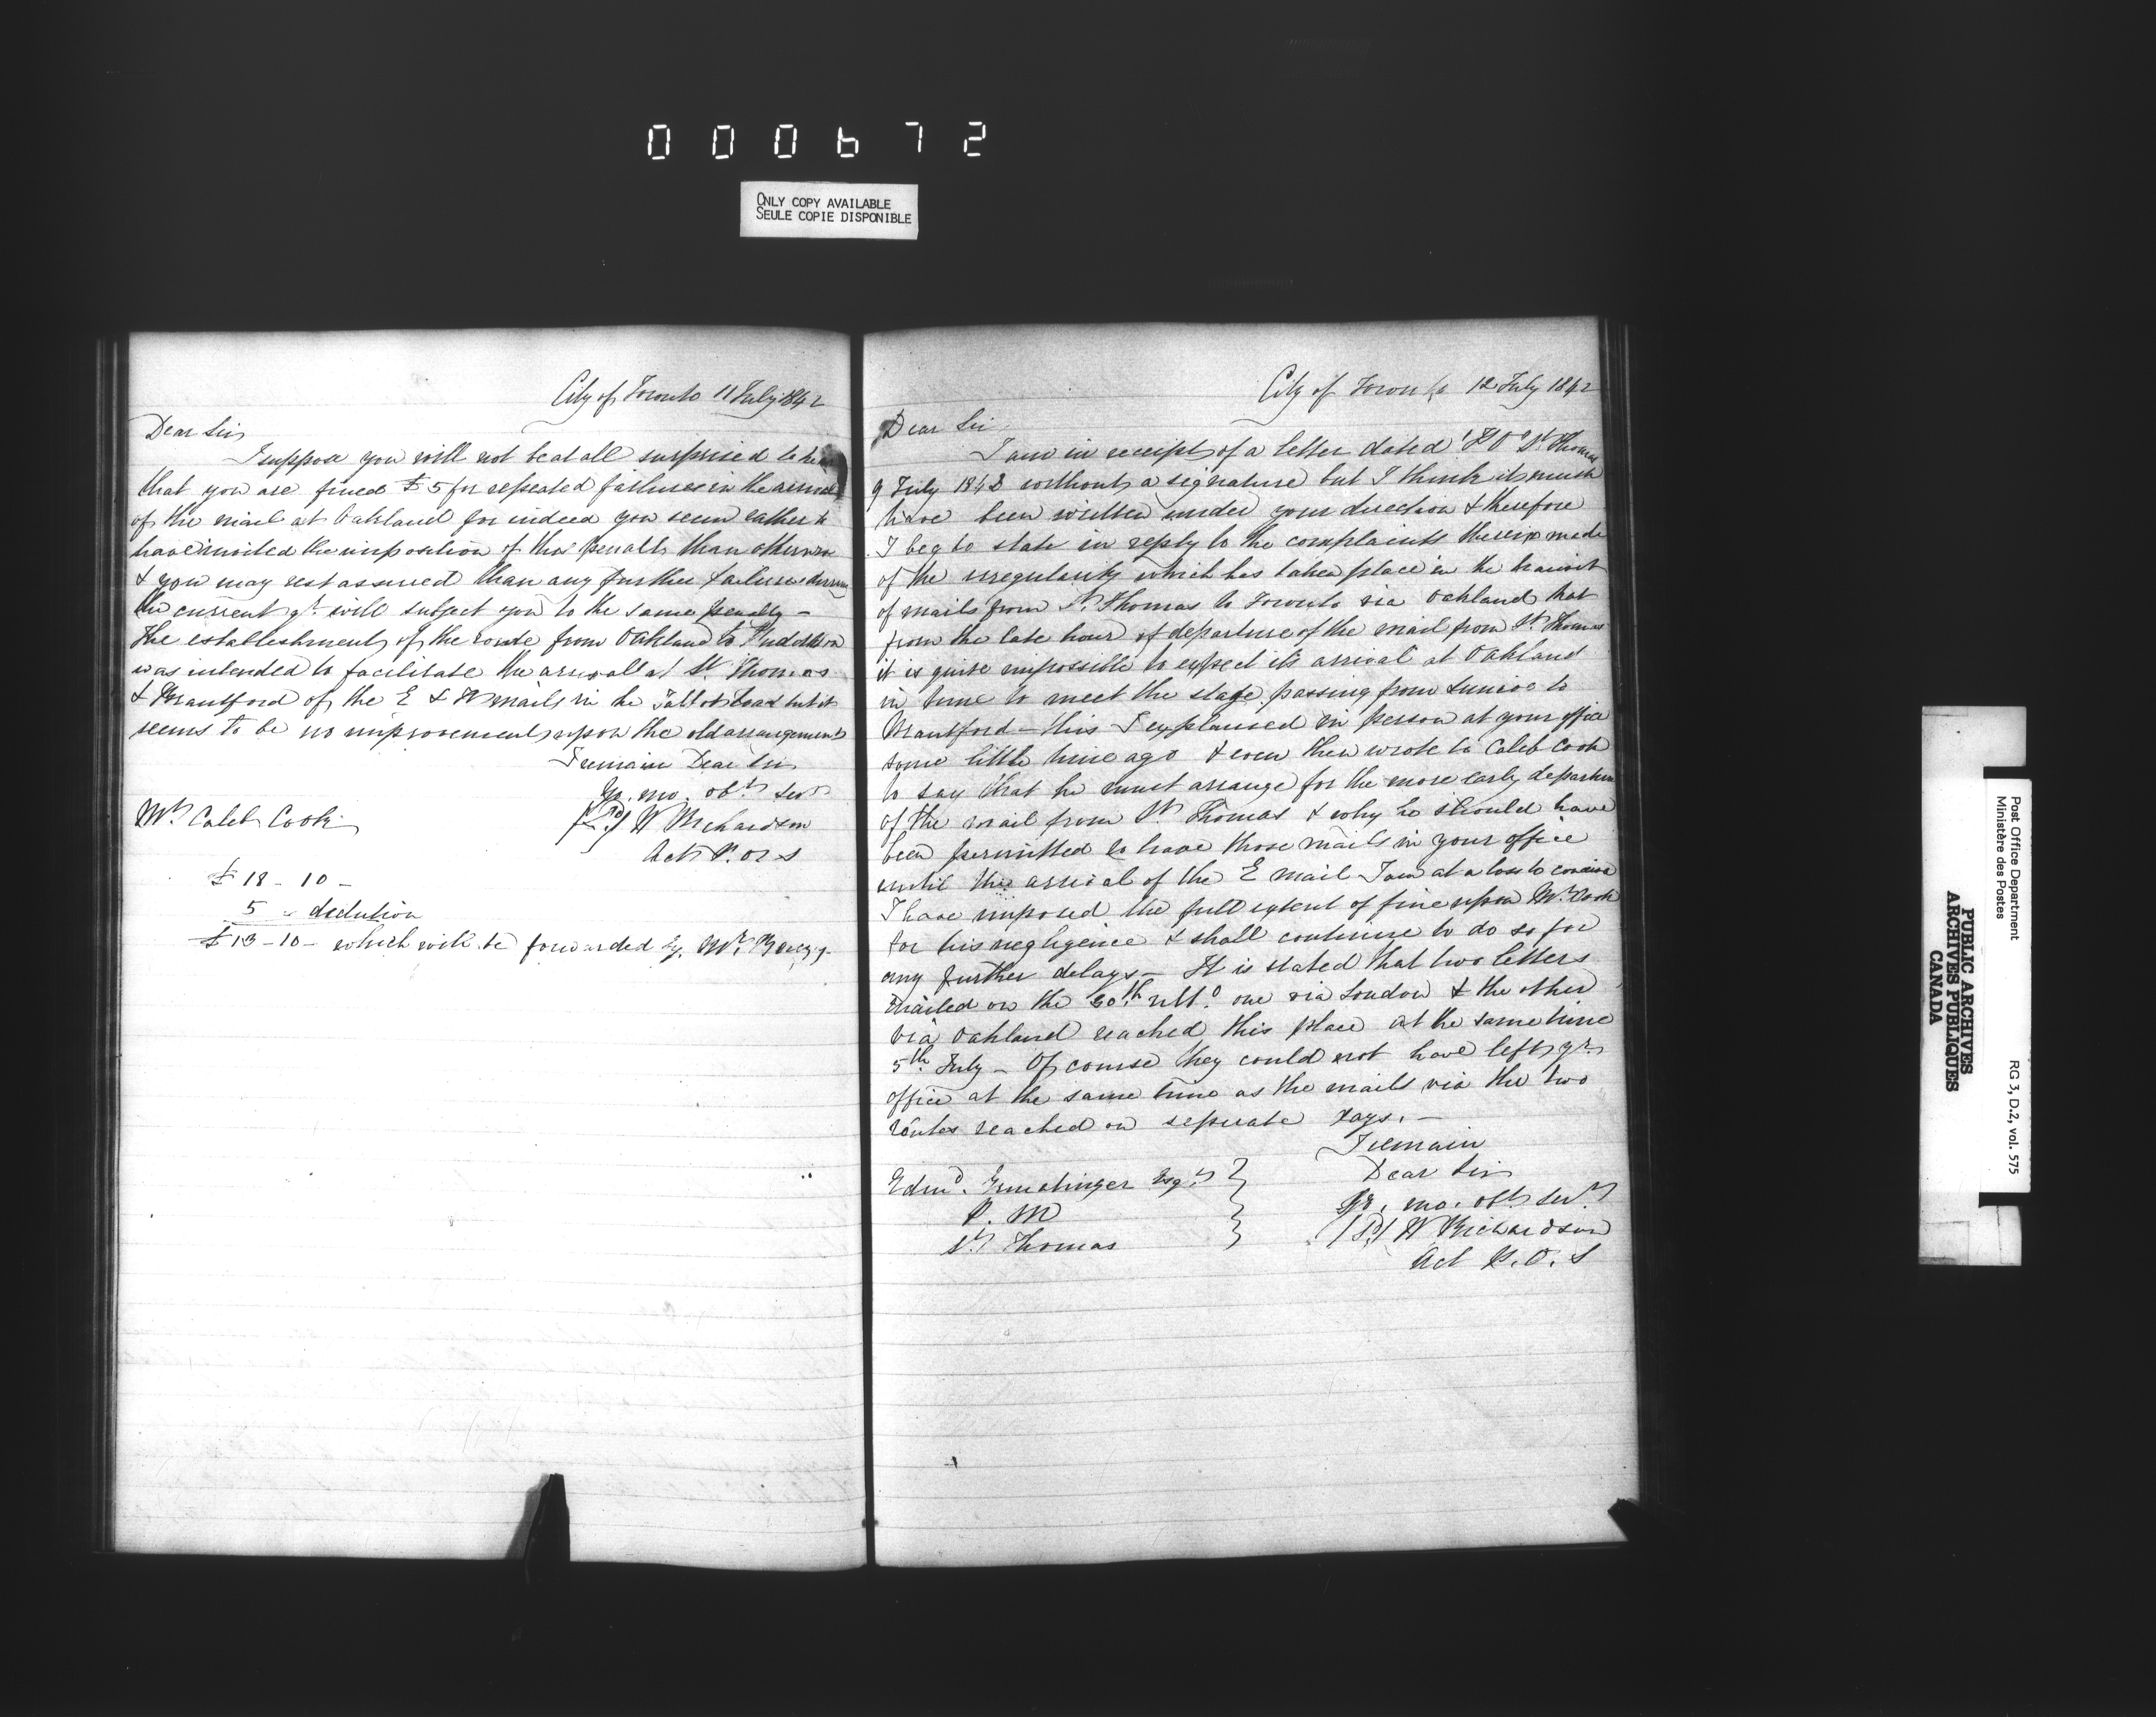 000672
ONLY COPY AVAILABLE
SEULE COPIE DISPONIBLE
City of Toronto 11 July 1842
Dear Sir
I suppose you will not be at all surprised to hear
that you are fined £5 for repeated failures in the arrival
of the mail at Oakland for indeed you seem rather to
have invited the imposition of this penalty than otherwise
& you may rest assured than any further failures during
the current qt. will subject you to the same penalty –
The establishment of the route from Oakland to
was intended to facilitate the arrival at St. Thomas
& Brantford of the E & W mails in the Talbot Road but it
seems to be no improvement upon the old arrangement
I remain Dear Sir
Yr. mo. obt. Servt
W Richardson
Act P. O. S
Mr Caleb Cook
£ 18 - 10 -
5 " dedution
£ 13 - 10 - which will be forwarded by Mr.
City of Toronto 12 July 1842
Dear Sir
I am in receipt of a letter dated P O St Thomas
9 July 1842 without a signature but I think it must
have been written under your direction & therefore
I beg to state in reply to the complaints therein made
of the irregularity which has taken place in the transit
of mails from St. Thomas to Toronto via Oakland that
from the late hour of departure of the mail from St. Thomas
it is quite impossible to expect its arrival at Oakland
in time to meet the stage passing from Simcoe to
Brantford – this I explained in person at your office
some little time ago & even then wrote to Caleb Cook
to say that he must arrange for the more early departure
of the mail from St. Thomas & why he should have
been permitted to have those mails in your office
until the arrival of the E mail I am at a loss to conceive
I have imposed the full extent of fine upon Mr. Cook
for his negligence & shall continue to do so for
any further delays – It is stated that two letters
mailed on the 30th ulto. one via London & the other
via Oakland reached this place at the same time
5th July – Of course they could not have left yr
office at the same time as the mails via the two
routes reached on seperate days. –
I remain
Dear Sir
Yr. mo. obt. Servt
W Richardson
Act P. O. S
Edmd. Ermatinger Esqr
P. M
St Thomas
Post Office Department
Ministère des Postes
RG 3, D.2, vol. 575
PUBLIC ARCHIVES
ARCHIVES PUBLIQUES
CANADA